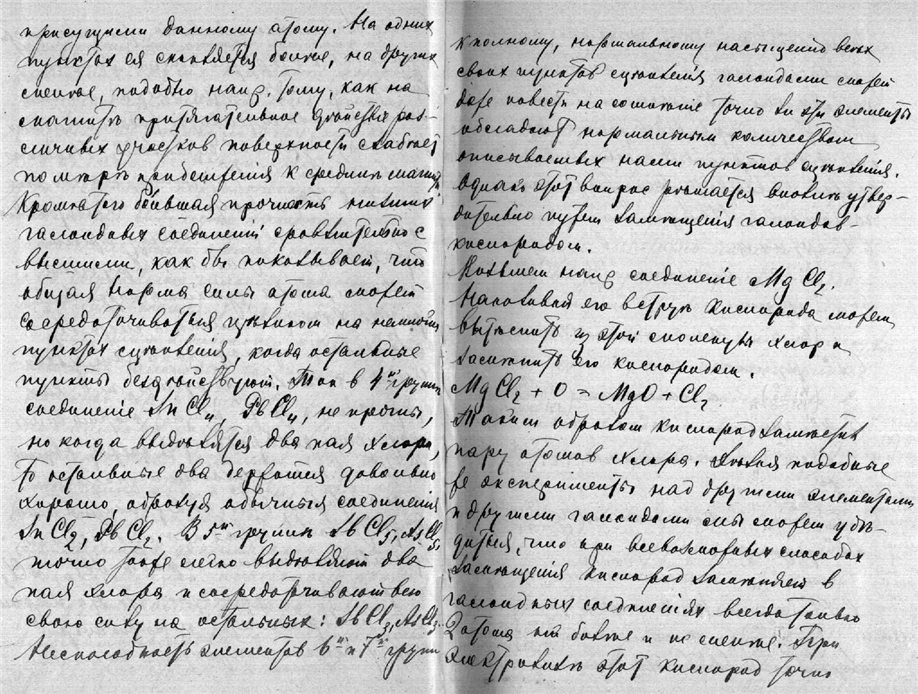 присущими данному атому. На одних
пунктах ея скопляется более, на других
менее, подобно напр. тому, как на
магните притягательное действие раз-
личных участков поверхности слабеет
по мере приближения к средине магнита.
Кроме того бо́льшая прочность низших
галоидных соединений сравнительно с
высшими, как бы показывает, что
общая норма силы атома может
сосредоточиваться целиком на немногих
пунктах сцепления, когда остальные
пункты бездействуют. Так в 4й группе
соединение SnCl4, PbCl4, не прочны,
но когда выделяются два пая хлора,
то остальные два держатся довольно
хорошо, образуя обычныя соединения
SnCl2, PbCl2. В 5й группе SbCl5, AsCl5,
точно также легко выделяют два
пая хлора и сосредоточивают всю
свою силу на остальных: SbCl3, AsCl3.
Неспособность элементов 6й и 7й групп
к полному, нормальному насыщению всех
своих пунктов сцепления галоидами может
даже навести на сомнение точно ли эти элементы
обладают нормальным количеством
описываемых нами пунктов сцепления.
Однако этот вопрос решается вполне утвер-
дительно путем замещения галоидов
кислородом.
Возьмем напр соединение MgCl2.
Направивая его в струе кислорода можем
вытеснить из этой молекулы хлор и
заменить его кислородом.
MgCl2 + O = MgO + Cl2.
Таким образом кислород заместил
пару атомов хлора. Делая подобные
же эксперименты над другими элементами
и другими галоидами мы можем убе-
диться, что при всевозможных способах
замещения кислород заменяет в
галоидных соединениях всегда только
2 атома не более и не менее. При
электролизе этот кислород точно